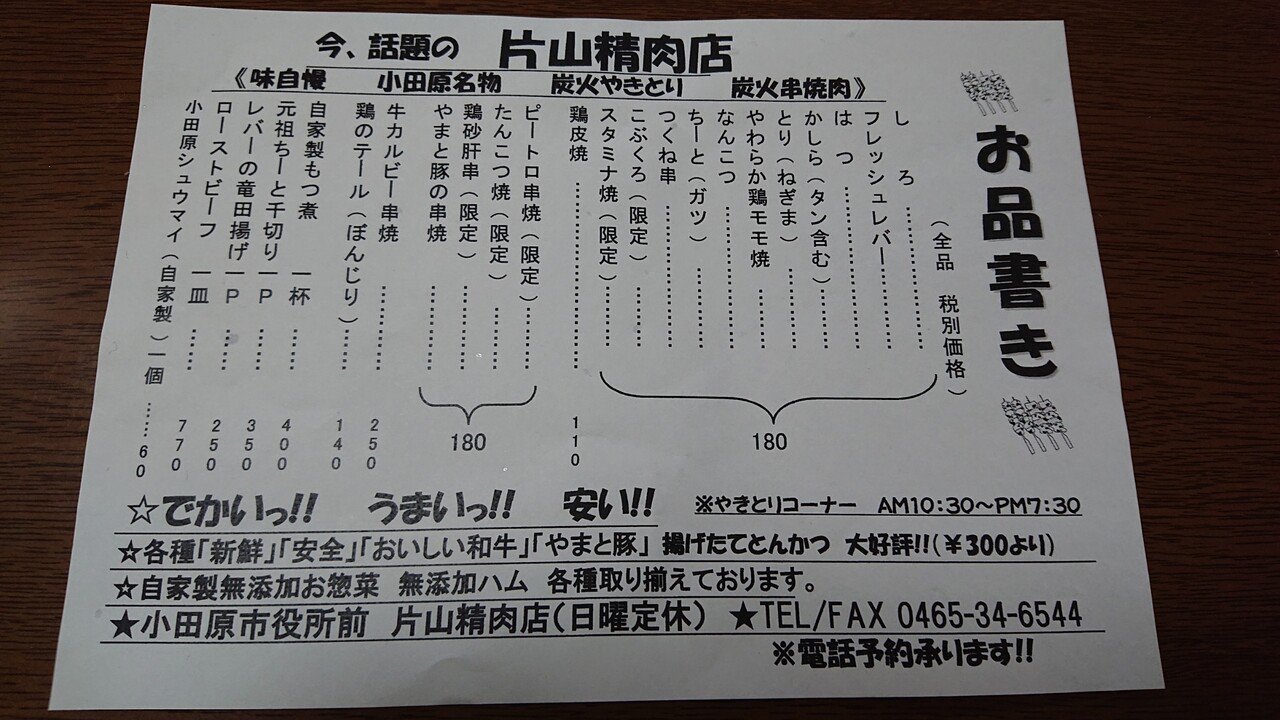 今、話題の 片山精肉店
《味自慢 小田原名物 炭火やきとり 炭火串焼肉》
お品書き
(全品 税別価格)
しろ……………
フレッシュレバー………
はつ……………
かしら(タン含む)………
とり(ねぎま)………
やわらか鶏モモ焼………
なんこつ……………
ちーと(ガツ)………
つくね串……………
こぶくろ(限定)………
スタミナ焼(限定)………
180
鶏皮焼…………………110
ピートロ串焼(限定)………
たんこつ焼(限定)………
鶏砂肝串(限定)………
やまと豚の串焼………
180
牛カルビー串焼………250
鶏のテール(ぼんじり)……140
自家製もつ煮 一杯……400
元祖ちーと千切り 一P……350
レバーの竜田揚げ 一P……250
ローストビーフ 一皿……770
小田原シュウマイ(自家製)一個……60
☆でかいっ!! うまいっ!! 安い!! ※やきとりコーナー AM10:30~PM7:30
☆各種「新鮮」「安全」「おいしい和牛」「やまと豚」 揚げたてとんかつ 大好評!!(¥300より)
☆自家製無添加お惣菜 無添加ハム 各種取り揃えております。
★小田原市役所前 片山精肉店(日曜定休) ★TEL/FAX 0465-34-6544
※電話予約承ります!!